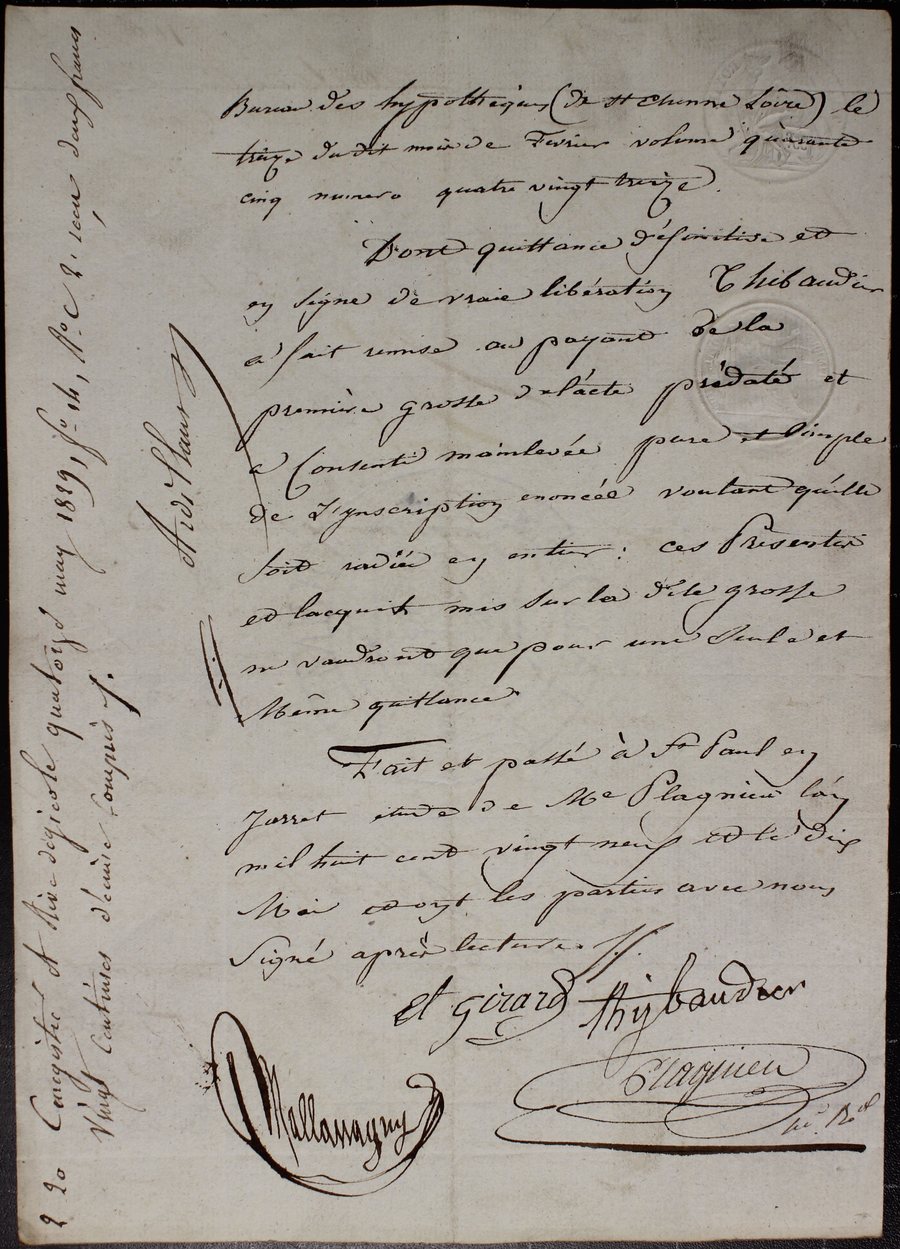 Bureau des hypothèques (de St Etienne Loire) le
treize du dit mois de Fevrier volume quarante
cinq numero quatre vingt treize.
Dont quittance définitive et
en signe de vraie libération Thibaudier
a fait remise au payant de la
première grosse de l'acte prédaté et
a Consenti mainlevée pure et simple
de l'ynscription enoncée voulant qu'elle
soit radiée en entier : ces Présentes
et lacquit mis sur la dite grosse
ne vaudront que pour une seule et
Même quittance
Fait et passé à St Paul en
Jarret étude de Me Plagnieu l'an
mil huit cent vingt neuf et le dix
Mai et ont les parties avec nous
signé après lecture.
et girard thybaudier
Mallassagny
Plagnieu
Enregistré à Rive de gicole quatorze may 1829, fo 14, Ro C 2. reçu deux francs
Vingt Centimes décime Compris
2 20